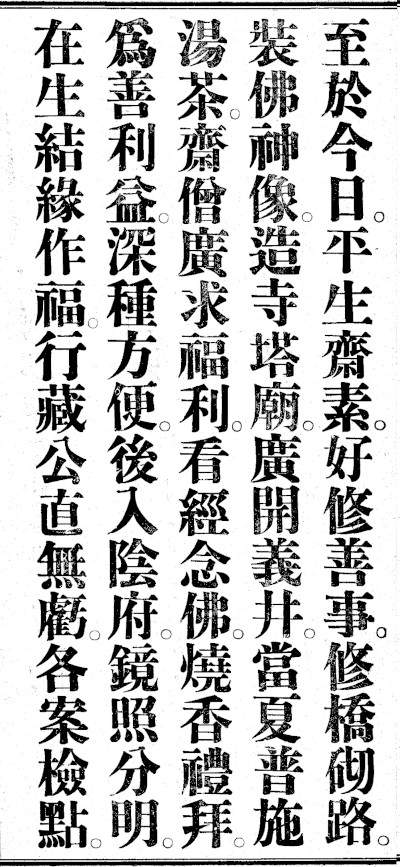 至於今日。平生齋素。好修善事。修橋砌路。
裝佛神像。造寺塔廟。廣開義井。當夏普施
湯茶。齋僧廣求福利。看經念佛。燒香禮拜。
爲善利益。深種方便。後入陰府。鏡照分明。
在生結緣作福。行藏公直無虧。各案檢點。